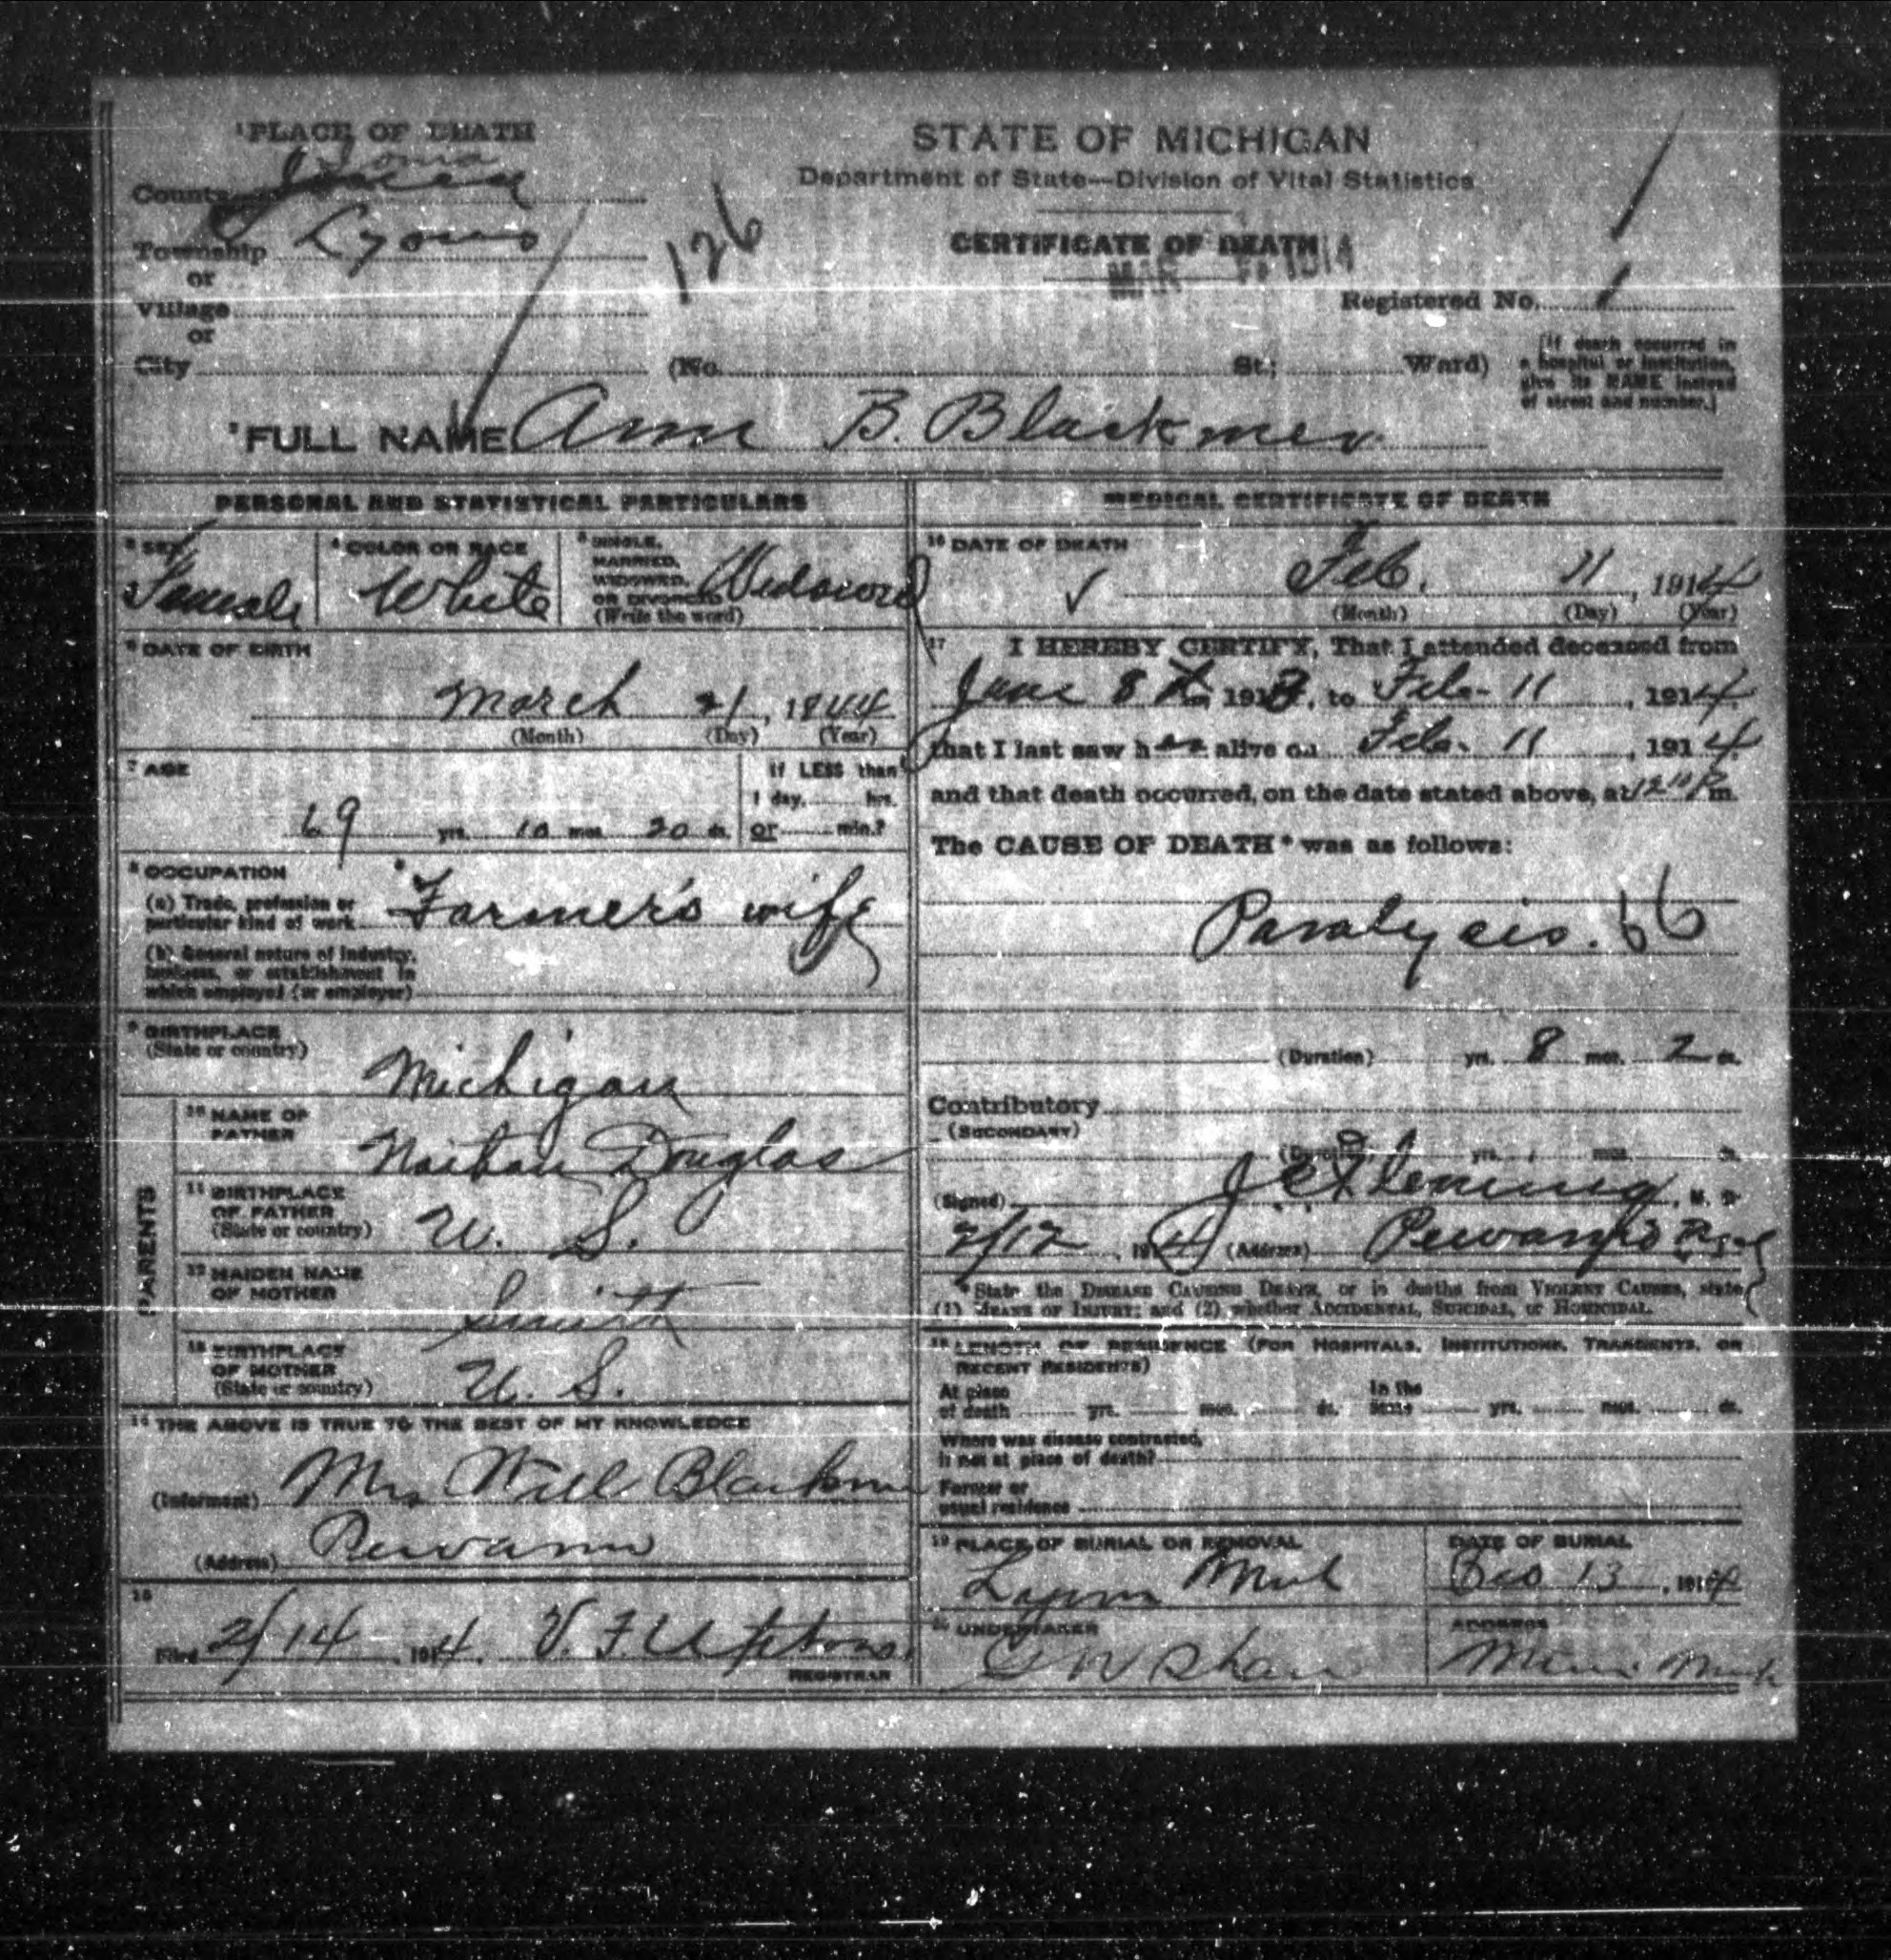 ¹PLACE OF DEATH
County Ionia
Township Lyons
or
Village
or
City
126
STATE OF MICHIGAN
Department of State—Division of Vital Statistics
CERTIFICATE OF DEATH
MAR 1914
Registered No. 1
(No. St.; Ward)
[If death occurred in
a hospital or institution,
give its NAME instead
of street and number.]
²FULL NAME Ann B. Blackmer
PERSONAL AND STATISTICAL PARTICULARS
³ SEX
Female
⁴ COLOR OR RACE
White
⁵ SINGLE,
MARRIED,
WIDOWED,
OR DIVORCED
(Write the word)
Widowed
⁶ DATE OF BIRTH
March 21, 1844
(Month) (Day) (Year)
⁷ AGE
69 yrs. 10 mos. 20 ds.
If LESS than
1 day, hrs.
or min.?
⁸ OCCUPATION
(a) Trade, profession or
particular kind of work Farmer's wife
(b) General nature of industry,
business, or establishment in
which employed (or employer)
⁹ BIRTHPLACE
(State or country)
Michigan
PARENTS
¹⁰ NAME OF
FATHER
Nathan Douglas
¹¹ BIRTHPLACE
OF FATHER
(State or country)
U. S.
¹² MAIDEN NAME
OF MOTHER
Smith
¹³ BIRTHPLACE
OF MOTHER
(State or country)
U. S.
¹⁴ THE ABOVE IS TRUE TO THE BEST OF MY KNOWLEDGE
(Informant) Mrs Will Blackmer
(Address) Pewamo
¹⁵
Filed 2/14, 1914. V. F. Uptons
REGISTRAR
MEDICAL CERTIFICATE OF DEATH
¹⁶ DATE OF DEATH
Feb. 11, 1914
(Month) (Day) (Year)
¹⁷ I HEREBY CERTIFY, That I attended deceased from
June 8th, 1913, to Feb. 11, 1914,
that I last saw her alive on Feb. 11, 1914,
and that death occurred, on the date stated above, at 12¹⁰ P m.
The CAUSE OF DEATH* was as follows:
Paralysis. 66
(Duration) yrs. 8 mos. 2 ds.
Contributory
(SECONDARY)
(Duration) yrs. mos. ds.
(Signed) J C Fleming, M. D.
2/12, 1914 (Address) Pewamo
*State the DISEASE CAUSING DEATH, or in deaths from VIOLENT CAUSES, state
(1) MEANS OF INJURY; and (2) whether ACCIDENTAL, SUICIDAL, or HOMICIDAL.
¹⁸ LENGTH OF RESIDENCE (FOR HOSPITALS, INSTITUTIONS, TRANSIENTS, OR
RECENT RESIDENTS)
At place
of death yrs. mos. ds.
In the
State yrs. mos. ds.
Where was disease contracted,
if not at place of death?
Former or
usual residence
¹⁹ PLACE OF BURIAL OR REMOVAL
Lyons Mich
DATE OF BURIAL
Feb 13, 1914
²⁰ UNDERTAKER
G W Shaw
ADDRESS
Mich